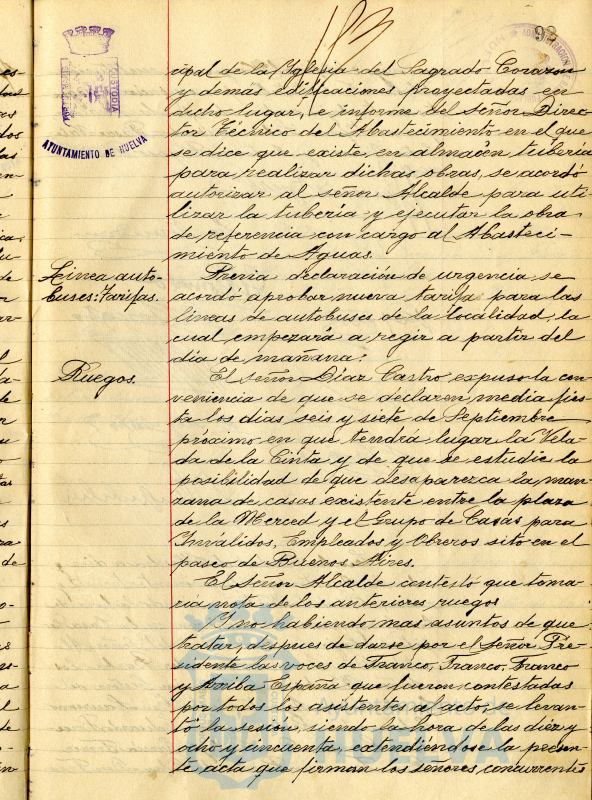 92
cipal de la Iglesia del Sagrado Corazon
y demás edificaciones proyectadas en
dicho lugar, e informe del Señor Direc
tor Técnico del Abastecimiento en el que
se dice que existe en almacén tubería
para realizar dichas obras, se acordó
autorizar al señor Alcalde para uti
lizar la tubería y ejecutar la obra
de referencia con cargo al Abasteci-
miento de Aguas.
Linea auto-
buses: Tarifas.
Previa declaración de urgencia, se
acordó aprobar nueva tarifa para las
líneas de autobuses de la localidad, la
cual empezará a regir a partir del
día de mañana.
Ruegos.
El señor Díaz Castro, expuso la con
veniencia de que se declaren media fies
ta los días seis y siete de Septiembre
próximo en que tendrá lugar la Vela-
da de la Cinta y de que se estudie la
posibilidad de que desaparezca la man
zana de casas existente entre la plaza
de la Merced y el Grupo de Casas para
Inválidos, Empleados y Obreros sito en el
paseo de Buenos Aires.
El Señor Alcalde contestó que toma
ría nota de los anteriores ruegos
Y no habiendo mas asuntos de que
tratar, despues de darse por el Señor Pre
sidente las voces de Franco, Franco, Franco
y Arriba España que fueron contestadas
por todos los asistentes al acto, se levan
tó la sesión, siendo la hora de las diez y
ocho y cincuenta, extendiendose la presen
te acta que firman los señores concurrentes
CUSTODIA
AYUNTAMIENTO DE HUELVA
ADMINISTRACION
HUELVA